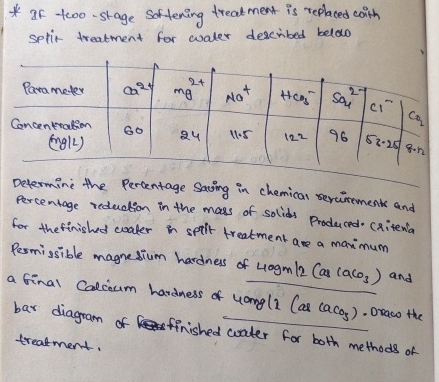 * If two-stage Softening treatment is replaced with
split treatment for water described below
Parameter Ca²⁺ mg²⁺ Na⁺ Hco₃⁻ So₄²⁻ cl⁻ Co₂
Concentration (mg/L) 60 24 11.5 122 96 53.25 8.12
Determine the Percentage Saving in chemical requirements and
Percentage reduction in the mass of solids Produced. Criteria
for the finished water in split treatment are a maximum
Permissible magnesium hardness of 40gm/l (as caco₃) and
a final Calcium hardness of 40mg/l (as caco₃). Draw the
bar diagram of finished water for both methods of
treatment.